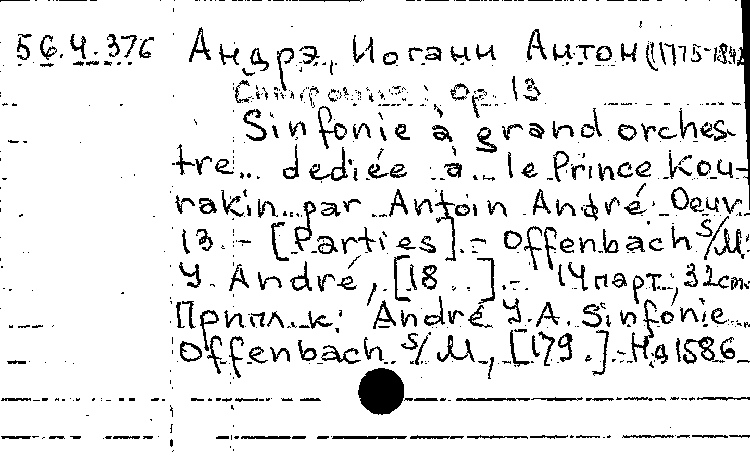 56.4.376 Андрэ, Иоганн Антон (1775-1842
Симфония; Op. 13
Sinfonie à grand orches-
tre... dediée à le Prince Kou-
rakin par Antoin André. Oeuv
13 - [Parties]. - Offenbach s/M:
J. André, [18 . .]. - 14 парт; 32cm.
Припл. к: André J.A. Sinfonie
Offenbach s/M, [179 .]. Нд 1586